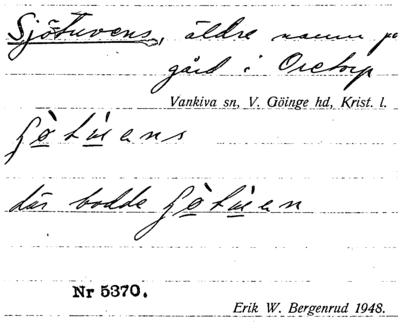 Sjötuvens, äldre namn på
gård i Oretorp
Vankiva sn, V. Göinge hd, Krist. l.
där bodde
Nr 5370.
Erik W. Bergenrud 1948.